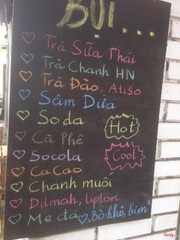 BỤI...
Trà Sữa Thái
Trà Chanh HN
Trà Đào, Atiso
Sâm Dứa
Soda
Hot
Cà Phê
Socola
Cool
Ca Cao
Chanh muối
Dilmah, Lipton
Me đá
Bò khô, bim